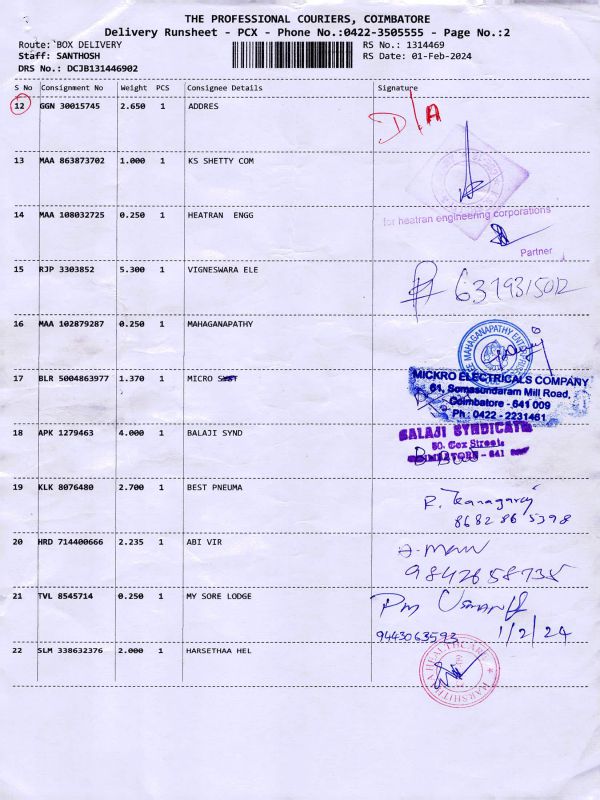 THE PROFESSIONAL COURIERS, COIMBATORE
Delivery Runsheet - PCX - Phone No.:0422-3505555 - Page No.:2
Route: BOX DELIVERY RS No.: 1314469
Staff: SANTHOSH RS Date: 01-Feb-2024
DRS No.: DCJB131446902
S No Consignment No Weight PCS Consignee Details Signature
12 GGN 30015745 2.650 1 ADDRES D/A
13 MAA 863873702 1.000 1 KS SHETTY COM
14 MAA 108032725 0.250 1 HEATRAN ENGG for heatran engineering corporations
Partner
15 RJP 3303852 5.300 1 VIGNESWARA ELE 6379315012
16 MAA 102879287 0.250 1 MAHAGANAPATHY MAHAGANAPATHY
17 BLR 5004863977 1.370 1 MICRO MICKRO ELECTRICALS COMPANY
61, Somasundaram Mill Road,
Coimbatore - 641 009
Ph : 0422 - 2231461
18 APK 1279463 4.000 1 BALAJI SYND BALAJI SYNDICATE
50, Cox Street,
COIMBATORE - 641
19 KLK 8076480 2.700 1 BEST PNEUMA R. Kanagaraj
8682865398
20 HRD 714400666 2.235 1 ABI VIR
9842658735
21 TVL 8545714 0.250 1 MY SORE LODGE
9443063593 1/2/24
22 SLM 338632376 2.000 1 HARSETHAA HEL HARSHITHAA HEALTHCARE